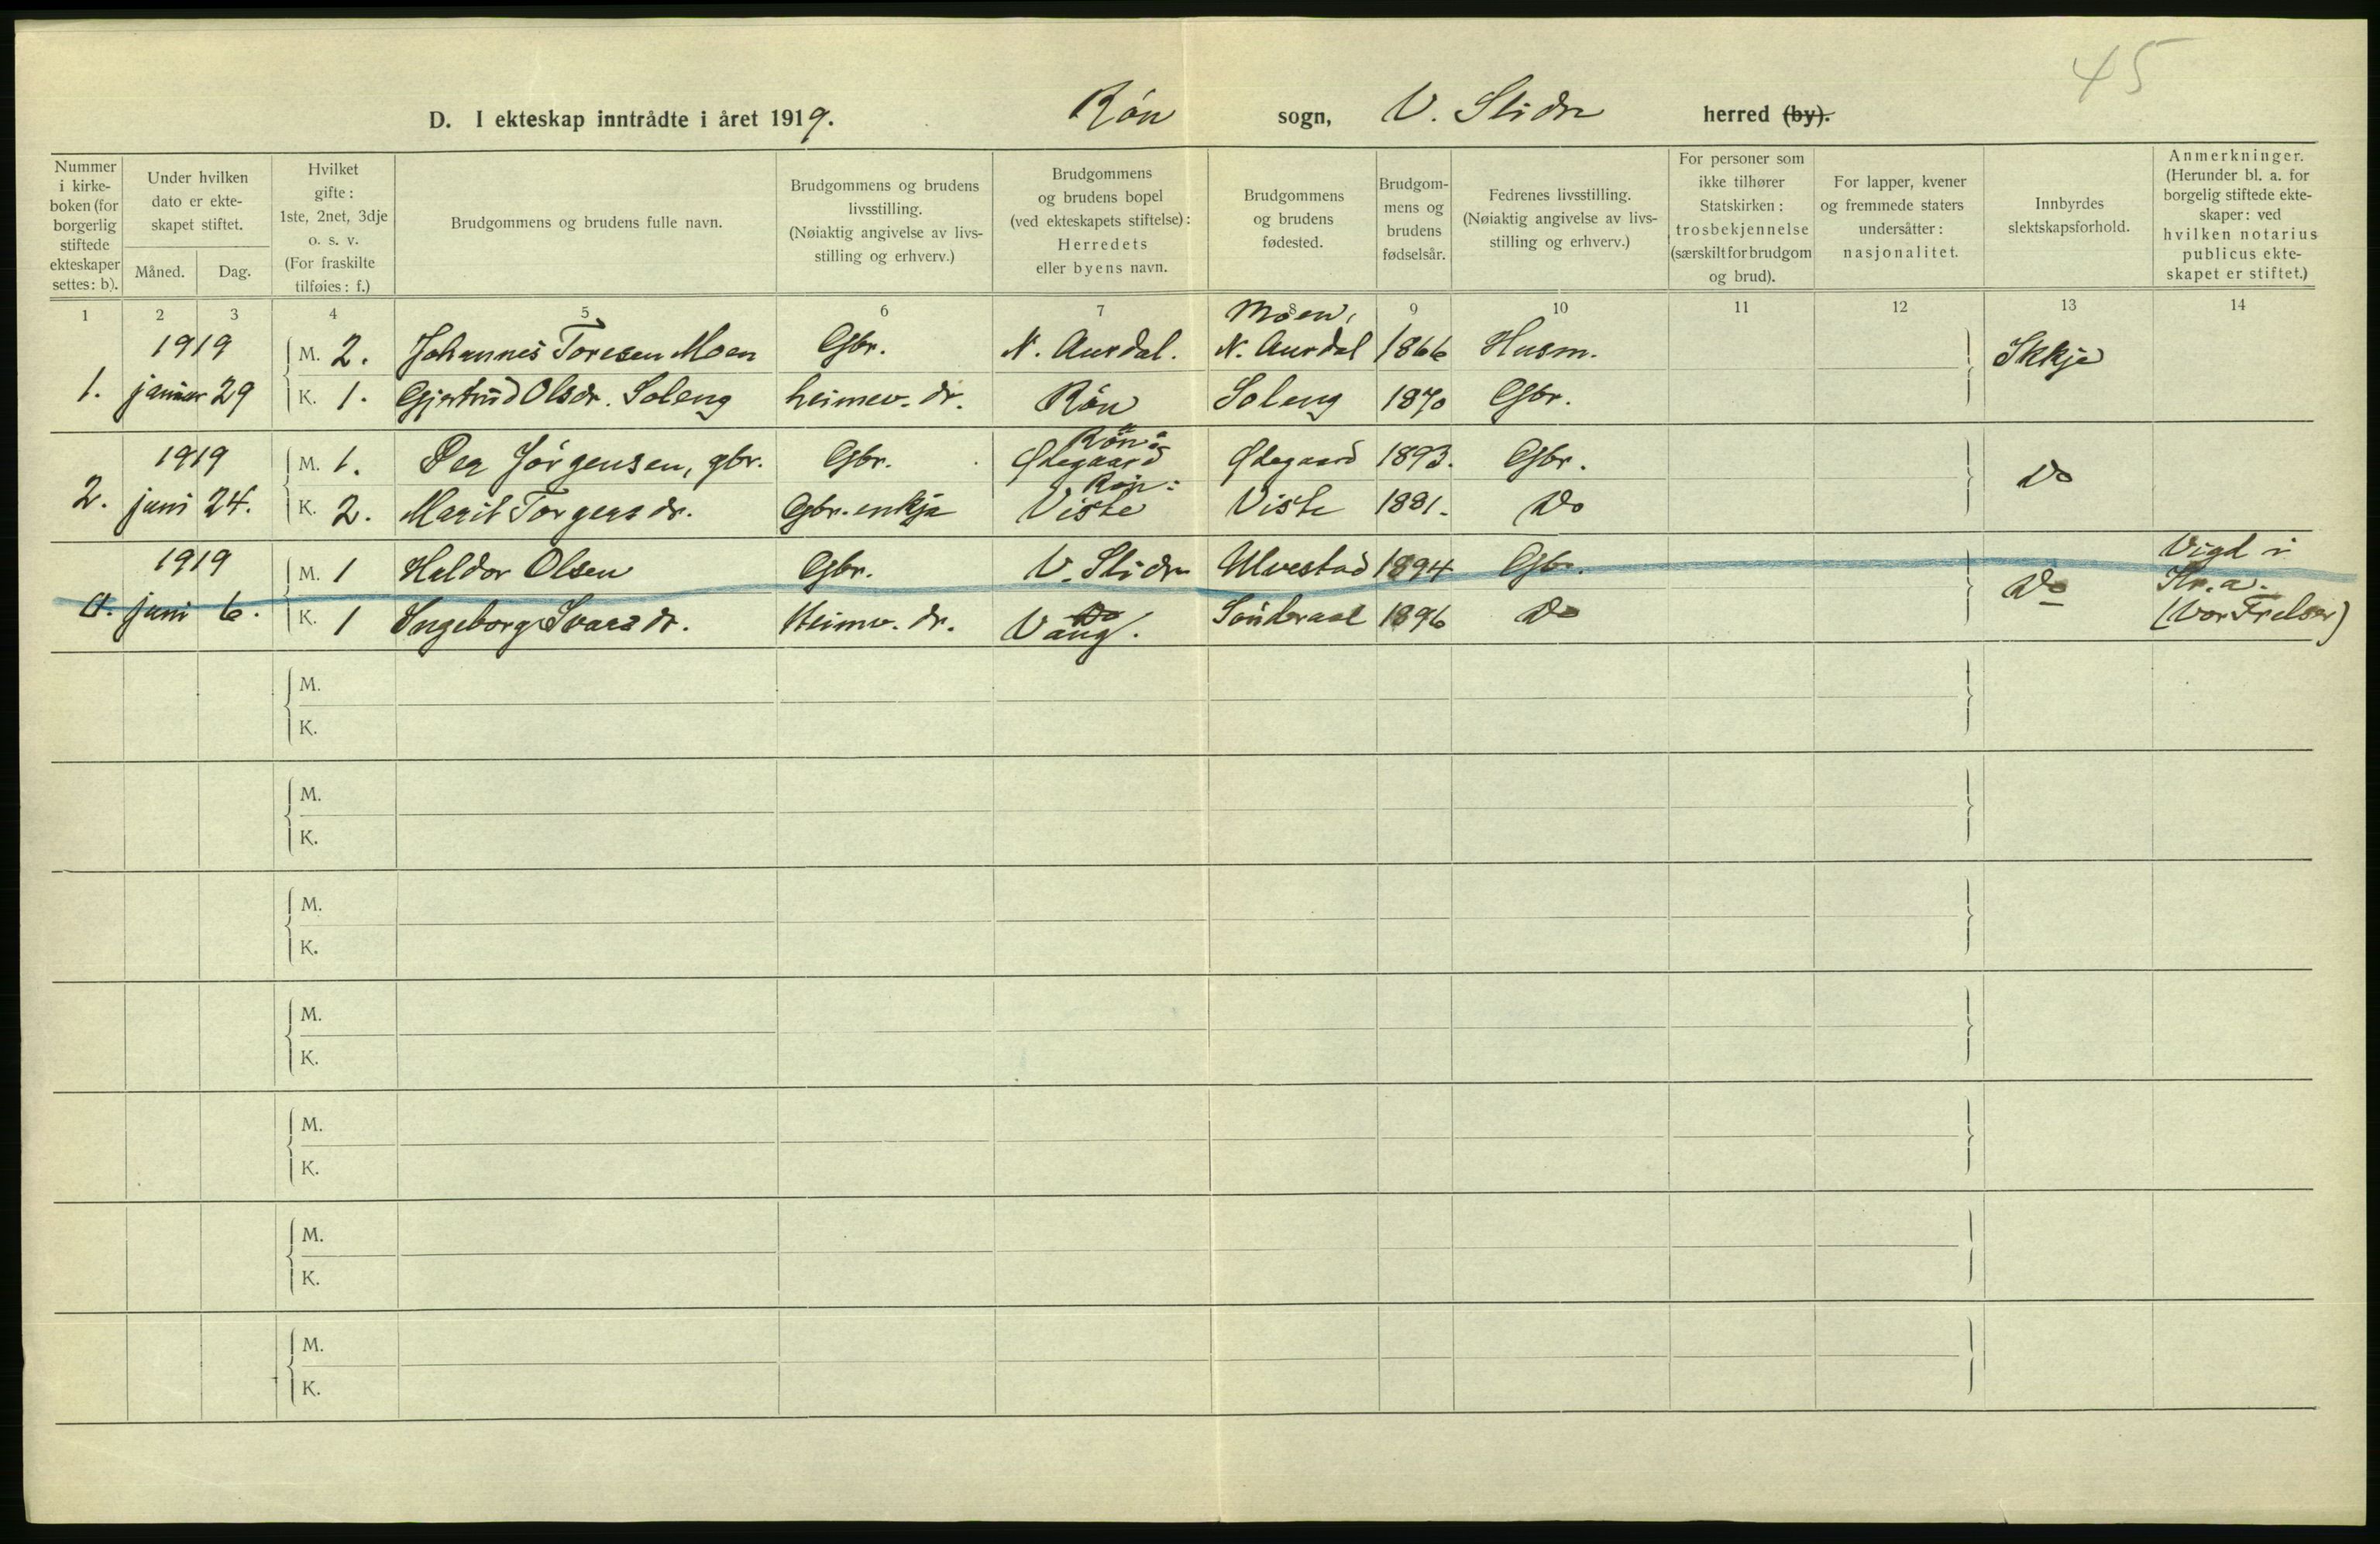 45
D. I ekteskap inntrådte i året 1919. Røn sogn, V. Slidre herred (by).
Nummer i kirkeboken (for borgerlig stiftede ekteskaper settes: b).
Under hvilken dato er ekteskapet stiftet.
Måned. Dag.
Hvilket gifte: 1ste, 2net, 3dje o. s. v. (For fraskilte tilføies: f.)
Brudgommens og brudens fulle navn.
Brudgommens og brudens livsstilling. (Nøiaktig angivelse av livsstilling og erhverv.)
Brudgommens og brudens bopel (ved ekteskapets stiftelse): Herredets eller byens navn.
Brudgommens og brudens fødested.
Brudgommens og brudens fødselsår.
Fedrenes livsstilling. (Nøiaktig angivelse av livsstilling og erhverv.)
For personer som ikke tilhører Statskirken: trosbekjennelse (særskilt for brudgom og brud).
For lapper, kvener og fremmede staters undersåtter: nasjonalitet.
Innbyrdes slektskapsforhold.
Anmerkninger. (Herunder bl. a. for borgelig stiftede ekteskaper: ved hvilken notarius publicus ekteskapet er stiftet.)
1 2 3 4 5 6 7 8 9 10 11 12 13 14
1919 M. 2. Johannes Toresen Moen Gbr. N. Aurdal. Moen, N. Aurdal 1866 Husm. Ikkje
1. januar 29 K. 1. Gjertrud Olsdr. Soleng heimev. dr. Røn Soleng 1870 Gbr.
1919 M. 1. Per Jørgensen, gbr. Gbr. Røn: Ødegaard Ødegaard 1893. Gbr. Do
2. juni 24. K. 2. Marit Torgersdr. Gbr. enkja Røn: Viste Viste 1881. Do
1919 M. 1 Haldor Olsen Gbr. V. Slidre Ulvestad 1894 Gbr. Do Vigd i Kr.a. (Vor Frelser)
juni 6. K. 1 Ingeborg Ivarsdr. Heimev. dr. Do Vang. Sønderaal 1896 Do
M.
K.
M.
K.
M.
K.
M.
K.
M.
K.
M.
K.
M.
K.